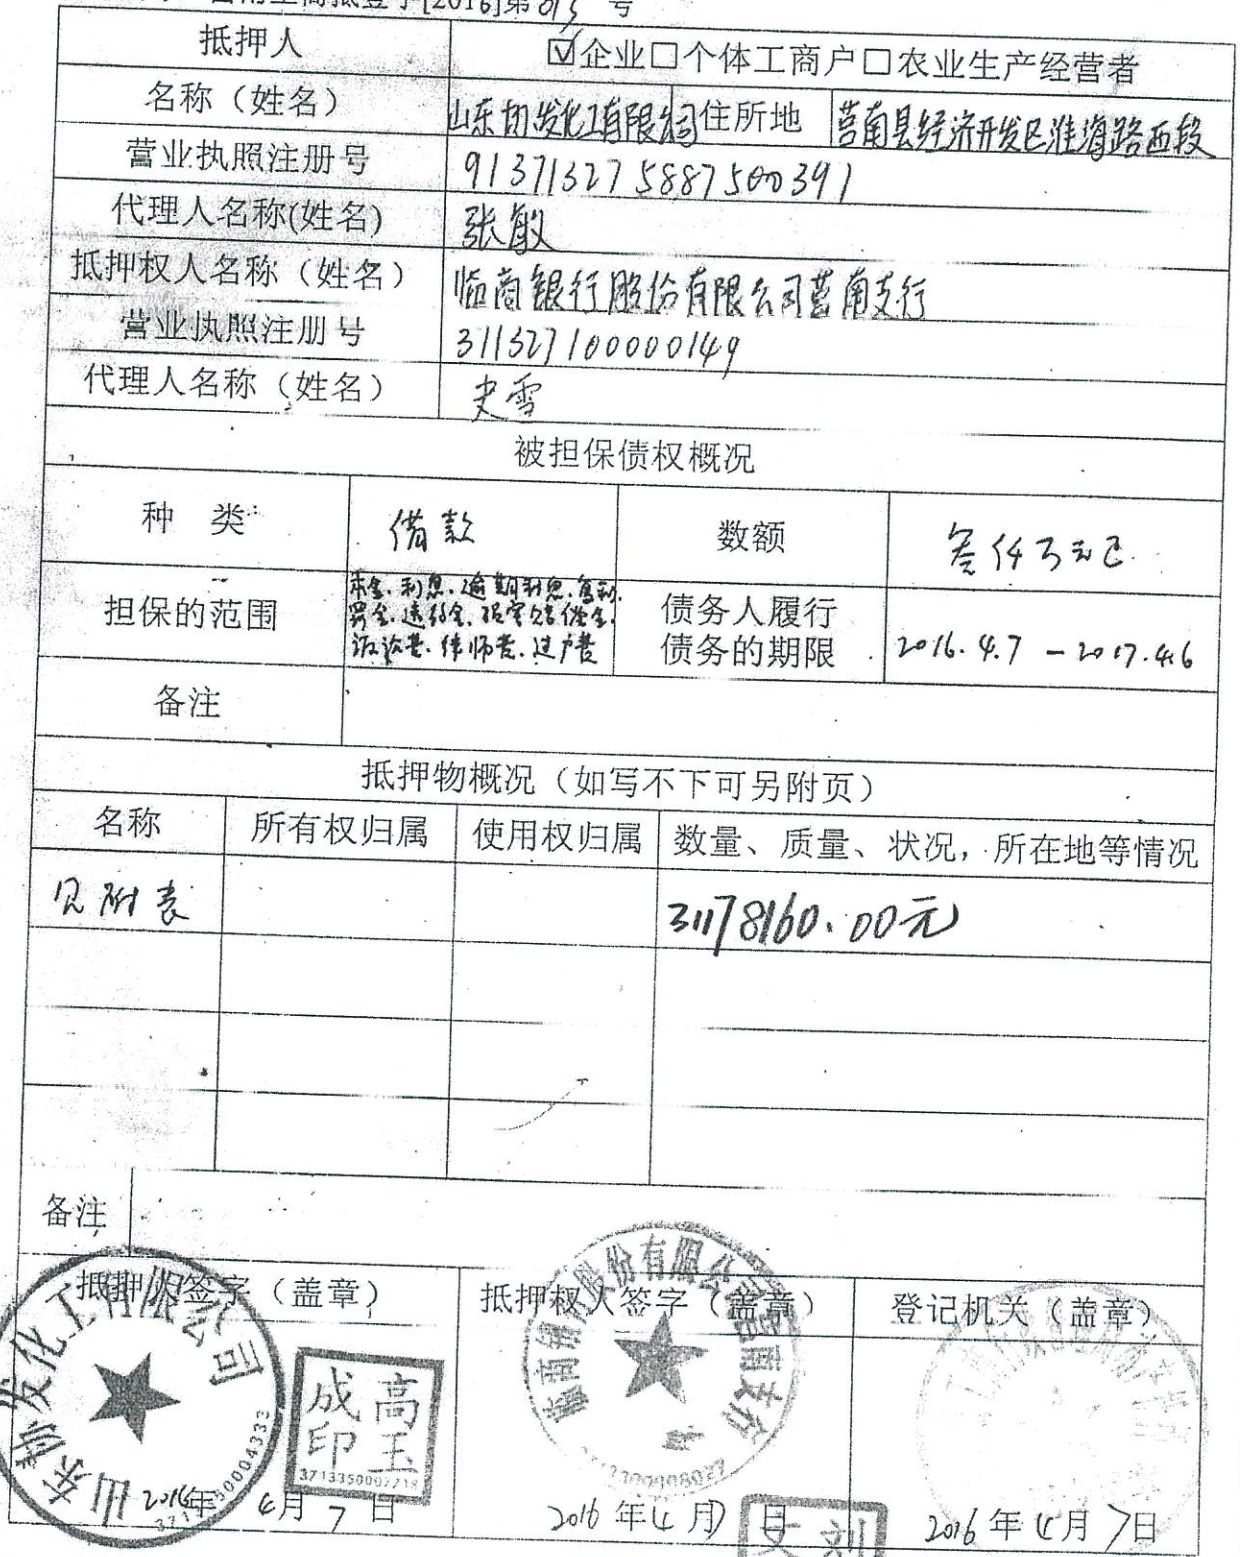 [2016]第013号
抵押人 ☑企业□个体工商户□农业生产经营者
名称（姓名） 山东 发化工有限公司 住所地 莒南县经济开发区淮海路西段
营业执照注册号 913713275887500391
代理人名称(姓名) 张敏
抵押权人名称（姓名） 临商银行股份有限公司莒南支行
营业执照注册号 311327100000149
代理人名称（姓名） 史雪
被担保债权概况
种 类 借款 数额 叁仟万元正
担保的范围 本金、利息、逾期利息、复利、
罚金、违约金、损害赔偿金、
诉讼费、律师费、过户费
债务人履行
债务的期限 2016.4.7-2017.4.6
备注
抵押物概况（如写不下可另附页）
名称 所有权归属 使用权归属 数量、质量、状况，所在地等情况
见附表 31178160.00元
备注
抵押人签字（盖章） 抵押权人签字（盖章） 登记机关（盖章）
发化工有限公司
山东
高玉
成印
临商银行股份有限公司莒南支行
2016年4月7日 2016年4月7日 2016年4月7日